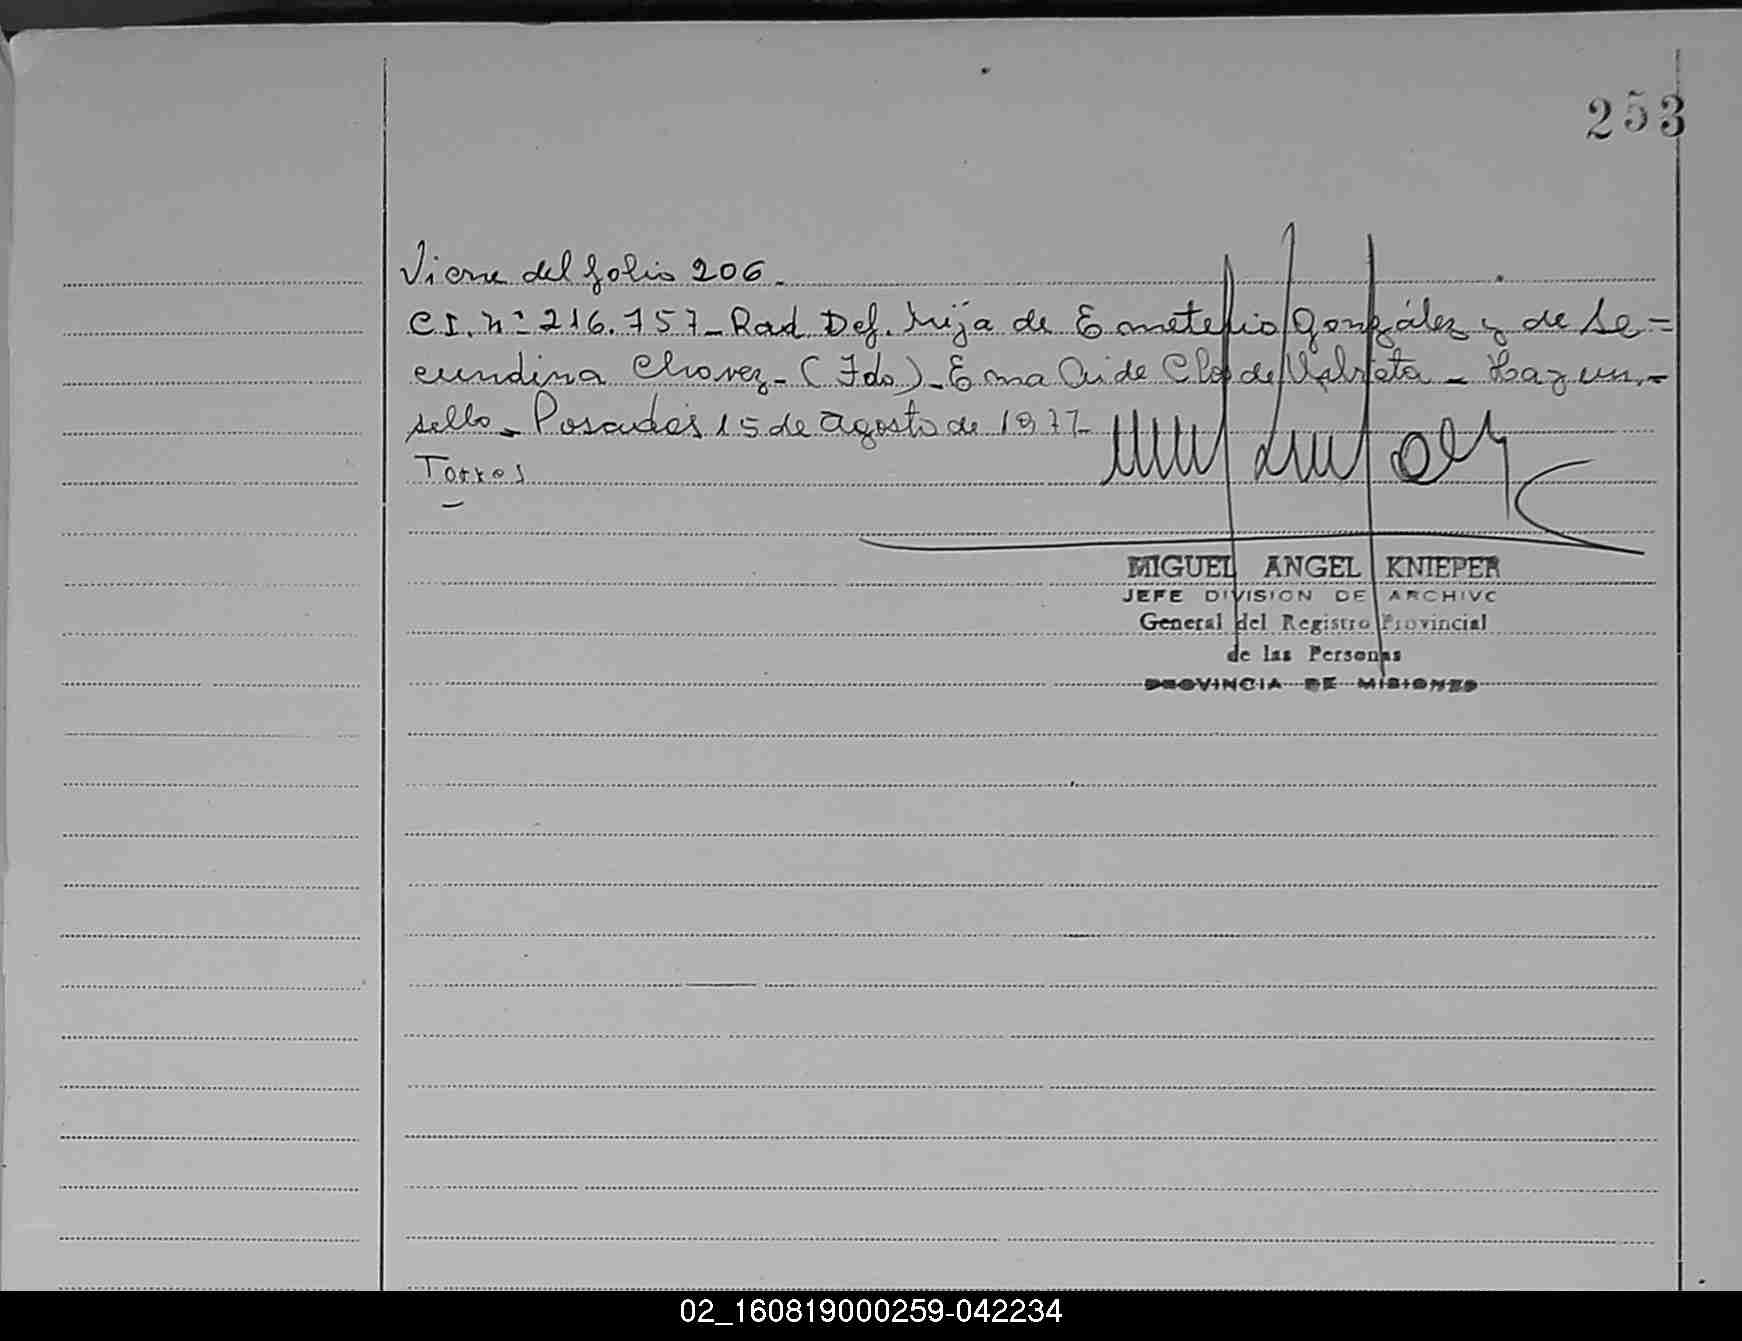 253
Viene del folio 206.
C I. nº 216.757 - Rad. Def. hija de Emeterio González y de Se=
cundina Chavez - (Fdo) - Ema de Clos de - Hay un -
sello - Posadas 15 de agosto de 1977 -
Torres
MIGUEL ANGEL KNIEPER
JEFE DIVISION DE ARCHIVO
General del Registro Provincial
de las Personas
PROVINCIA DE MISIONES
02_160819000259-042234